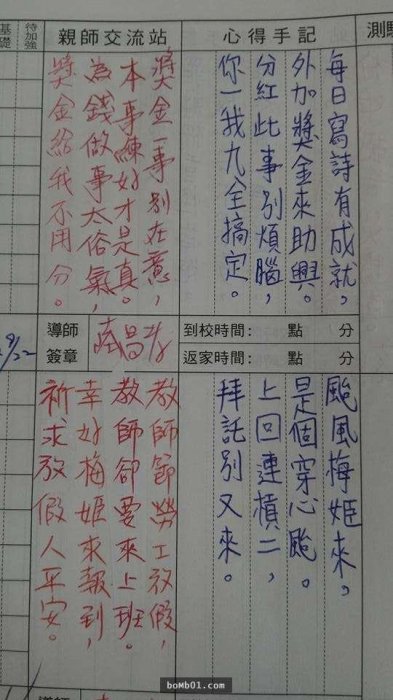 基礎
待加強
親師交流站
心得手記
測驗
每日寫詩有成就，
外加獎金來助興。
分紅此事別煩腦，
你一我九全搞定。
獎金一事別在意，
本事練好才是真。
為錢做事太俗氣，
獎金給我不用分。
9/22
導師
簽章
到校時間： 點 分
返家時間： 點 分
颱風梅姬來，
是個穿心颱。
上回連槓二，
拜託別又來。
教師節勞工放假，
教師卻要來上班。
幸好梅姬來報到，
祈求放假人平安。
導師
boMb01.com